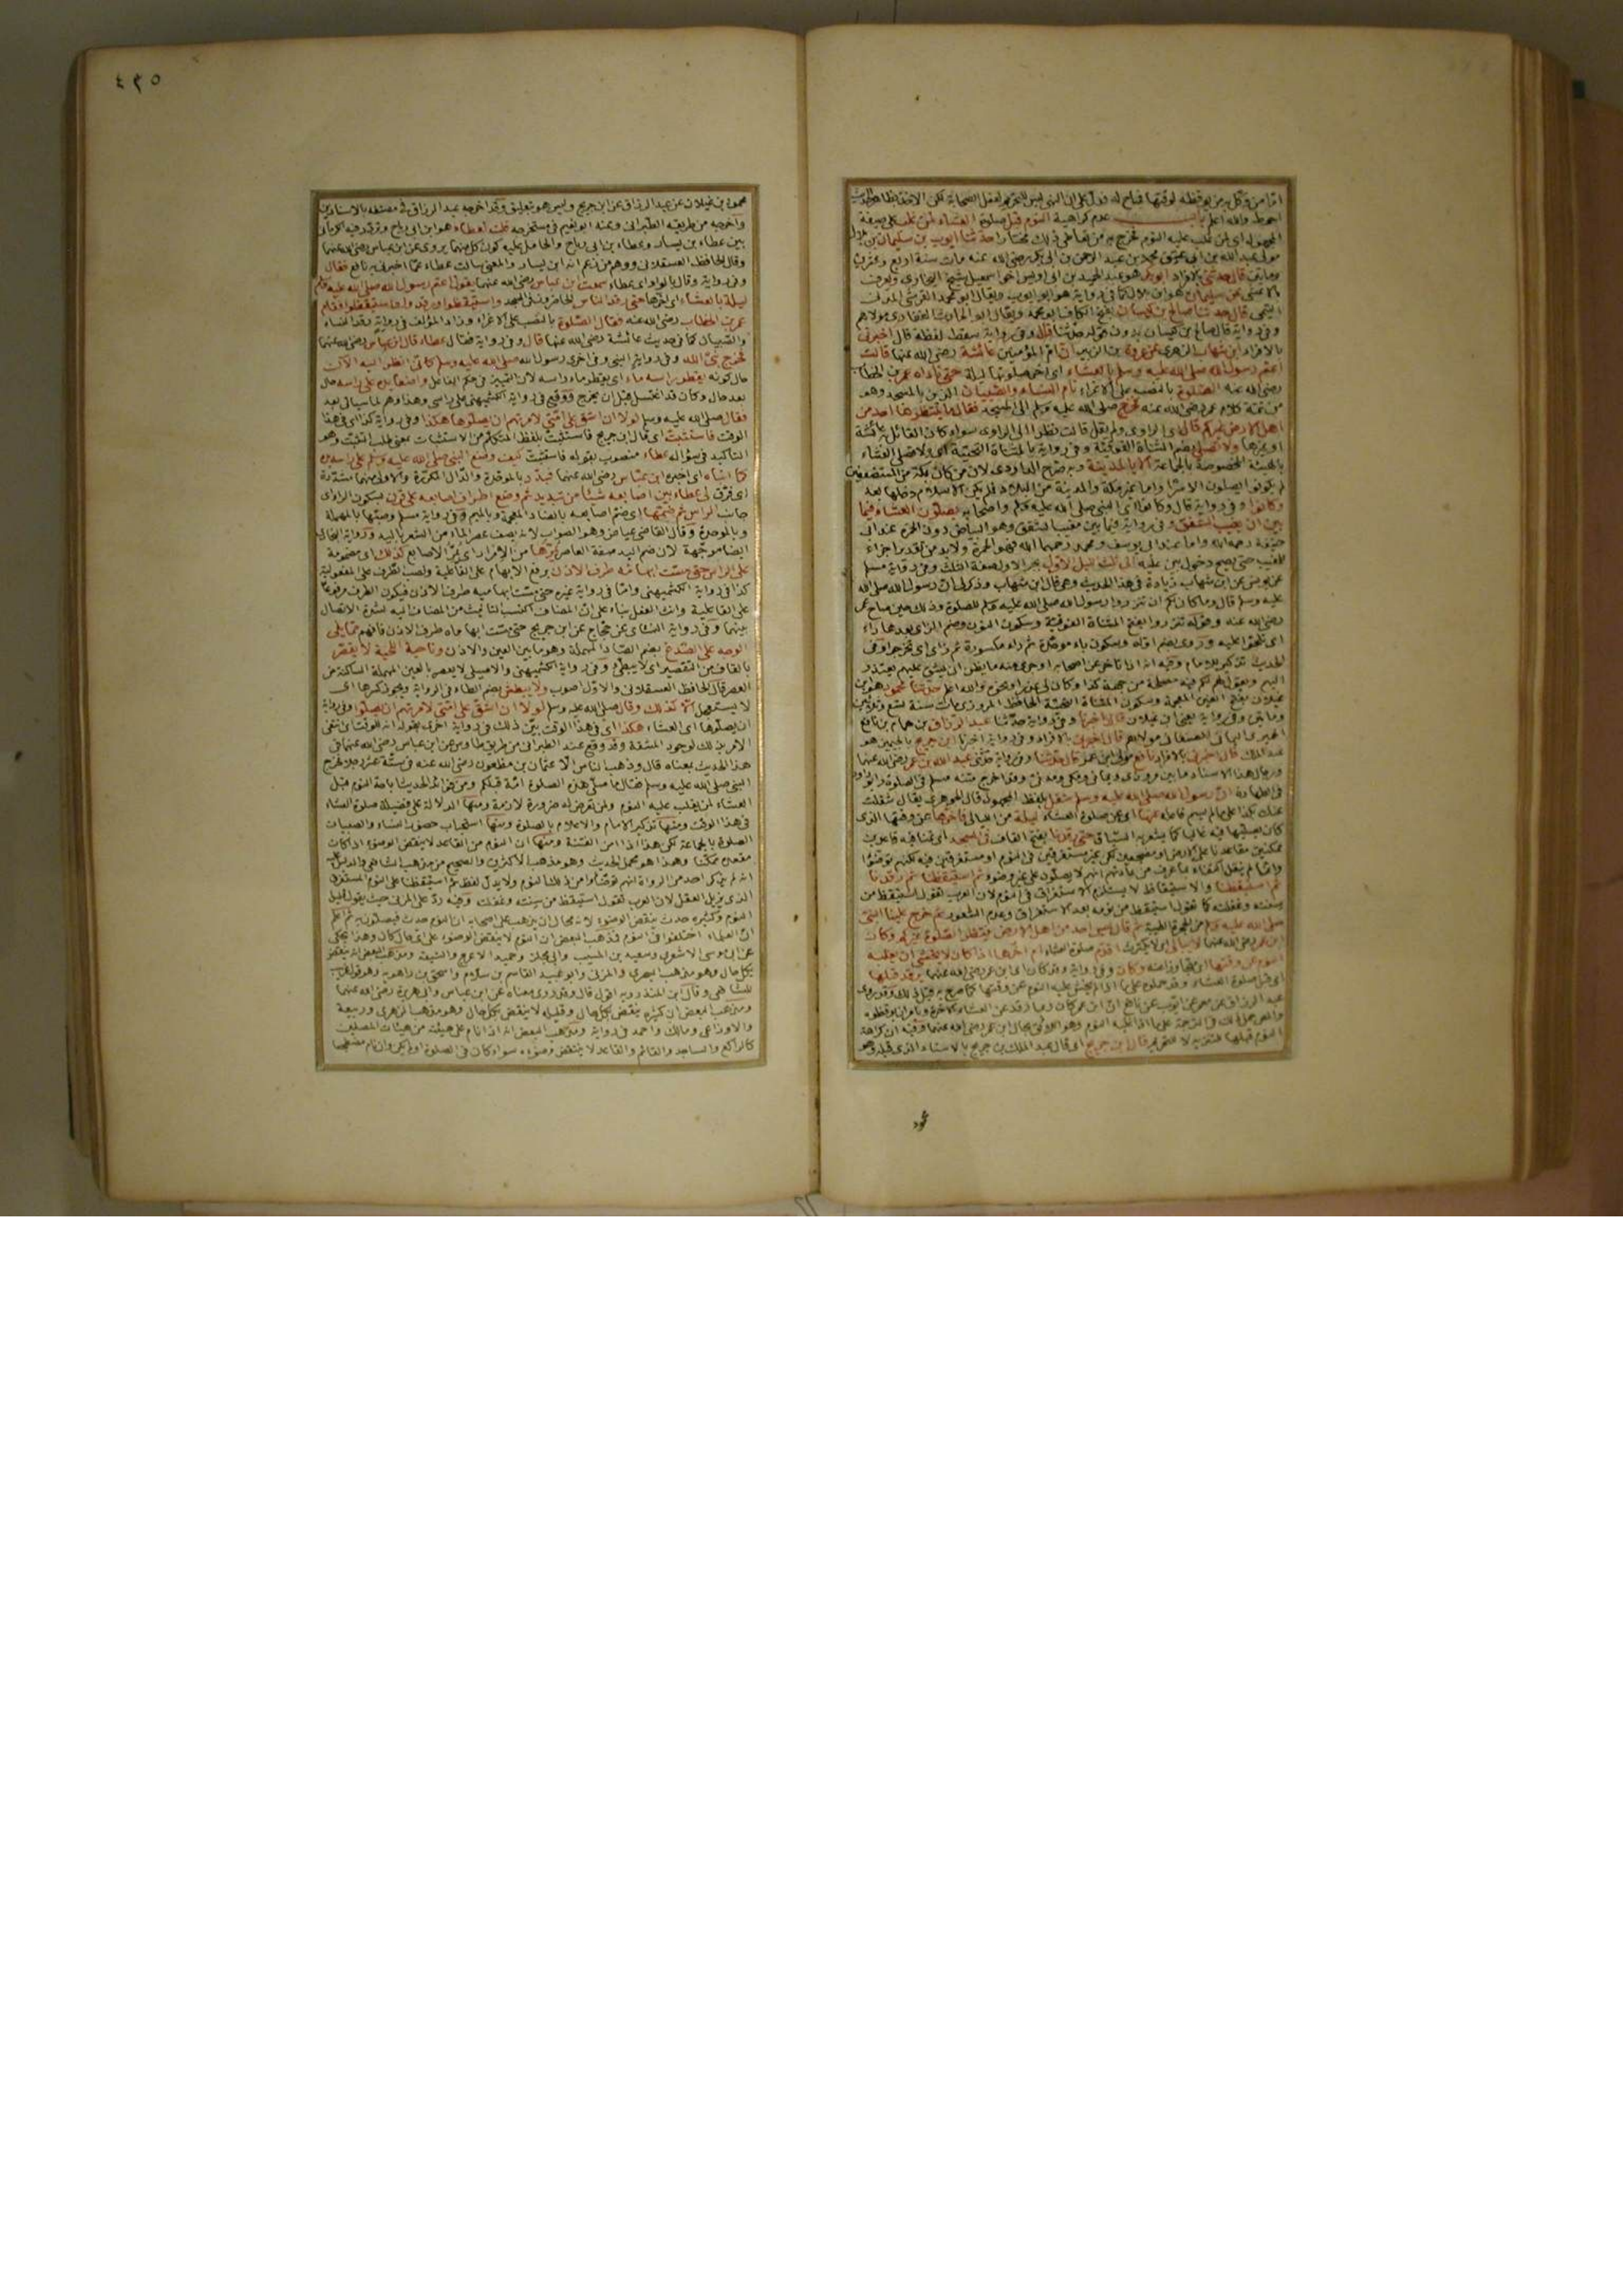 امّا من وكّل به من يوقظه لوقتها فمباح له فدلّ على ان النهى ليس للتحريم لفعل الصحابة لكن الاخذ بظاهر الحديث
احوط والله اعلم باب عدم كراهية النوم قبل صلوة العشاء لمن غلب على صيغة
المجهول اى لمن غلب عليه النوم فخرج به من تعاطى ذلك مختارا حدثنا ايوب بن سليمان بن بلال
مولى عبد الله بن ابى عتيق محمد بن عبد الرحمن بن ابى بكر رضى الله عنه مات سنة اربع وعشرين
ومأتين قال حدثنى بالافراد ابو بكر هو عبد الحميد بن ابى اويس اخو اسمعيل شيخ البخارى ويعرف
بالاعشى عن سليمان
التيمى قال حدثنا صالح بن كيسان بفتح الكاف
وفى رواية قال صالح بن كيسان بدون قوله حدثنا قال وفى رواية سقط لفظة قال اخبرنى
بالافراد ابن شهاب الزهرى عن عروة بن الزبير ان امّ المؤمنين عائشة رضى الله عنها قالت
اعتم رسول الله صلى الله عليه وسلم بالعشاء اى اخر صلوتها ليلة حتى ناداه عمر بن الخطاب
رضى الله عنه الصلوة بالنصب على الاغراء نام النساء والصبيان الذين بالمسجد وهو
من تتمة كلام عمر رضى الله عنه فخرج صلى الله عليه وسلم الى المسجد فقال ما ينتظرها احد من
اهل الارض غيركم قال اى الراوى ولم يقل قالت نظرا الى الراوى سواء كان القائل به عائشة
او غيرها ولا تصلى بضم المثناة الفوقية وفى رواية بالمثناة التحتية اى ولا تصلى العشاء
بالهيئة المخصوصة بالجماعة الا بالمدينة وبه صرّح الداودى لان من كان بمكة من المستضعفين
لم يكونوا يصلون الا سرّا واما غير مكة والمدينة من البلاد فلم يكن الاسلام دخلها بعد
وكانوا وفى رواية قال وكانوا اى النبى صلى الله عليه وسلم واصحابه يصلون العشاء فيما
بين ان يغيب الشفق وفى رواية فيما بين مغيب الشفق وهو البياض دون الحمرة عند ابى
حنيفة رحمه الله واما عند ابى يوسف ومحمد رحمهما الله فهو الحمرة ولابد من تقدير اجزاء
للمغيب حتى يصح دخول بين عليه الى ثلث الليل الاول بجر الاول صفة الثلث وفى رواية مسلم
عن يونس عن ابن شهاب زيادة فى هذا الحديث وهى قال ابن شهاب وذكر لى ان رسول الله صلى الله
عليه وسلم قال وما كان لكم ان تنزروا رسول الله صلى الله عليه وسلم للصلوة وذلك حين صاح عمر
رضى الله عنه وقوله تنزروا بفتح المثناة الفوقية وسكون النون وضم الزاى بعدها راء
اى تلحوا عليه وروى بضم اوله وسكون باء موحدة ثم راء مكسورة ثم زاى اى تخرجوا وفى
الحديث تذكير الامام وفيه انه اذا تاخر عن اصحابه او جرى منه ما يظن انه يشق عليهم يعتذر
اليهم ويقول لهم لكم فيه مصلحة من جهة كذا وكان لى عذر او نحوه والله اعلم حدثنا محمود هو ابن
غيلان بفتح الغين المعجمة وسكون المثناة التحتية الحافظ المروزى مات سنة تسع وثلاثين
ومأتين وفى رواية يعنى ابن غيلان قال اخبرنا وفى رواية حدثنا عبد الرزاق بن همام بن نافع
الحميرى اليمانى الصنعانى مولاهم قال اخبرنى بالافراد وفى رواية اخبرنا ابن جريج بالجيمين هو
عبد الملك قال اخبرنى بالافراد نافع مولى ابن عمر قال حدثنا وفى رواية حدثنى عبد الله بن عمر رضى الله عنهما
ورجال هذا الاسناد ما بين مروزى ويمانى ومكى ومدنى وقد اخرج متنه مسلم فى الصلوة وابو داود
فى الطهارة ان رسول الله صلى الله عليه وسلم شغل بلفظ المجهول قال الجوهرى يقال شغلت
عنك بكذا على ما لم يسم فاعله عنها اى عن صلوة العشاء ليلة من الليالى فاخرها عن وقتها الذى
كان يصليها فيه غالبا كما يشعر به السياق حتى رقدنا بفتح القاف فى المسجد اى نمنا فيه قاعدين
ممكنين مقاعدنا على الارض او مضطجعين لكن غير مستغرقين فى النوم او مستغرقين فيه لكنهم توضئوا
وانما لم ينقل اكتفاء بما عرف من عادتهم انهم لا يصلون على غير وضوء ثم استيقظنا ثم رقدنا
ثم استيقظنا والاستيقاظ لا يستلزم الاستغراق فى النوم لان العرب تقول استيقظ من
سنته وغفلته كما تقول استيقظ من نومه بعد الاستغراق وعدم الشعور ثم خرج علينا النبى
صلى الله عليه وسلم من الحجرة الطيبة ثم قال ليس احد من اهل الارض ينتظر الصلوة غيركم وكان
ابن عمر رضى الله عنهما لا يبالى اى لا يكترث اقدم صلوة العشاء ام اخرها اذا كان لا يخشى ان يغلبه
النوم عن وقتها اى يتجاوز منه وكان وفى رواية وقد كان اى ابن عمر رضى الله عنهما يرقد قبلها
اى قبل صلوة العشاء وقد حملوه على ما اذا لم يخش غلبة النوم عن وقتها كما صرح به قبل ذلك وقد روى
عبد الرزاق عن معمر عن ايوب عن نافع ان ابن عمر كان ربما رقد عن العشاء الاخرة ويأمر ان يوقظوه
النوم قبلها للتنزيه لا للتحريم قال ابن جريج اى قال عبد الملك بن جريج بالاسناد الذى قبله وهو
محمود
٤٢٥
محمود بن غيلان عن عبد الرزاق عن ابن جريج وليس هو بتعليق وقد اخرجه عبد الرزاق فى مصنفه بالاسنادين
واخرجه من طريقه الطبرانى وعنه ابو نعيم فى مستخرجه قلت لعطاء هو ابن ابى رباح وتردد فيه الكرمانى
بين عطاء بن يسار وعطاء بن ابى رباح والحامل عليه كون كل منهما يروى عن ابن عباس رضى الله عنهما
وقال الحافظ العسقلانى ووهم من زعم انه ابن يسار والمعنى سالت عطاء عمّا اخبرنى به نافع فقال
وفى رواية وقال بالواو اى عطاء سمعت ابن عباس رضى الله عنهما يقول اعتم رسول الله صلى الله عليه وسلم
ليلة بالعشاء اى اخرها حتى رقد الناس الحاضرون فى المسجد واستيقظوا ورقدوا واستيقظوا فقام
عمر بن الخطاب رضى الله عنه فقال الصلوة بالنصب على الاغراء وزاد المؤلف فى رواية رقد النساء
والصبيان كما فى حديث عائشة رضى الله عنها قال وفى رواية فقال عطاء قال ابن عباس رضى الله عنهما
فخرج نبى الله وفى رواية النبى وفى اخرى رسول الله صلى الله عليه وسلم كانى انظر اليه الآن
حال كونه يقطر راسه ماء اى يقطر ماء راسه لان التمييز فى حكم الفاعل واضعا يده على راسه حال
بعد حال وكان قد اغتسل قبل ان يخرج ووقع فى رواية الكشميهنى على راسى وهذا وهم لما سياتى بعد
فقال صلى الله عليه وسلم لولا ان اشق على امتى لامرتهم ان يصلوها هكذا وفى رواية كذا اى فى هذا
الوقت فاستثبت اى قال ابن جريج فاستثبت بلفظ المتكلم من الاستثبات بمعنى طلب التثبت وهو
التاكيد فى سؤاله عطاء منصوب بقوله فاستثبت كيف وضع النبى صلى الله عليه وسلم على راسه يده
كما انبأه اى اخبره ابن عباس رضى الله عنهما فبدّد بالموحدة والدال المكررة والاولى منهما مشددة
اى فرّق لى عطاء بين اصابعه شيئا من تبديد ثم وضع اطراف اصابعه على قرن بسكون الراء اى
جانب الراس ثم ضمها اى ضم اصابعه بالضاد المعجمة وبالميم وفى رواية مسلم وصبها بالمهملة
وبالموحدة وقال القاضى عياض وهو الصواب لانه يصف عصر الماء من الشعر باليد ورواية البخارى
ايضا موجّهة لان ضم اليد صفة العاصر يمرّها من الامرار اى يُمرّ الاصابع كذلك اى مضمومة
على الراس حتى مسّت ابهامُه طرفَ الاذن برفع الابهام على الفاعلية ونصب الطرف على المفعولية
كذا فى رواية الكشميهنى وامّا فى رواية غيره حتى مسّت ابهاميه طرف الاذن فيكون الطرف مرفوعا
على الفاعلية وانث الفعل بناء على انّ المضاف اكتسب التانيث من المضاف اليه لشدة الاتصال
بينهما وفى رواية النسائى عن حجاج عن ابن جريج حتى مسّت ابهاماه طرف الاذن فافهم ممّا يلى
الوجه على الصدغ بضم الصاد المهملة وهو ما بين العين والاذن وناحية اللحية لا يقصّر
بالقاف من التقصير اى لا يبطئ وفى رواية الكشميهنى والاصيلى لا يعصر بالعين المهملة الساكنة من
العصر قال الحافظ العسقلانى والاوّل اصوب ولا يبطش بضم الطاء فى الرواية ويجوز كسرها اى
لا يستعجل الا كذلك وقال صلى الله عليه وسلم لولا ان اشق على امتى لامرتهم ان يصلوا وفى رواية
ان يصلوها اى العشاء هكذا اى فى هذا الوقت بيّن ذلك فى رواية اخرى بقوله انه للوقت اى نفى
الامر بذلك لوجود المشقة وقد وقع عند الطبرانى من طريق طاوس عن ابن عباس رضى الله عنهما فى
هذا الحديث بمعناه قال وذهب الناس الّا عثمان بن مظعون رضى الله عنه فى ستة عشر رجلا فخرج
النبى صلى الله عليه وسلم فقال ما صلّى هذه الصلوة امّة قبلكم ومن فوائد الحديث اباحة النوم قبل
العشاء لمن يغلب عليه النوم ولمن تعرض له ضرورة لازمة ومنها الدلالة على فضيلة صلوة العشاء
فى هذا الوقت ومنها تذكير الامام والاعلام بالصلوة ومنها استحباب حضور النساء والصبيان
الصلوة بالجماعة لكن هذا اذا امن الفتنة ومنها ان النوم من القاعد لا ينقض الوضوء اذا كان
مقعده ممكّنا وهذا هو محمل الحديث وهو مذهب الاكثرين والصحيح من مذهب الشافعى والدليل عليه
انه لم يذكر احد من الرواة انهم توضئوا من ذلك النوم ولا يدلّ لفظ ثم استيقظنا على النوم المستغرق
الذى يزيل العقل لان العرب تقول استيقظ من سنته وغفلته وفيه ردّ على المزنى حيث يقول قليل
النوم وكثيره حدث ينقض الوضوء لانه محال ان يذهب على اصحابه ان النوم حدث فيصلون به ثم اعلم
انّ العلماء اختلفوا فى النوم فذهب البعض ان النوم لا ينقض الوضوء على اىّ حال كان وهذا يحكى
عن ابى موسى الاشعرى وسعيد بن المسيب وابى مجلز وحميد الاعرج والشيعة ومذهب البعض انه ينقض
بكل حال وهو مذهب البصرى والمزنى وابو عبيد القاسم بن سلام واسحق بن راهويه وهو قول غريب
للشافعى وقال ابن المنذر وبه اقول قال وقد روى معناه عن ابن عباس وابى هريرة رضى الله عنهما
ومذهب البعض ان كثيره ينقض بكل حال وقليله لا ينقض بكل حال وهو مذهب الزهرى وربيعة
والاوزاعى ومالك واحمد فى رواية ومذهب البعض انه اذا نام على هيئة من هيئات المصلين
كالراكع والساجد والقائم والقاعد لا ينتقض وضوءه سواء كان فى الصلوة او لم يكن وان نام مضطجعا